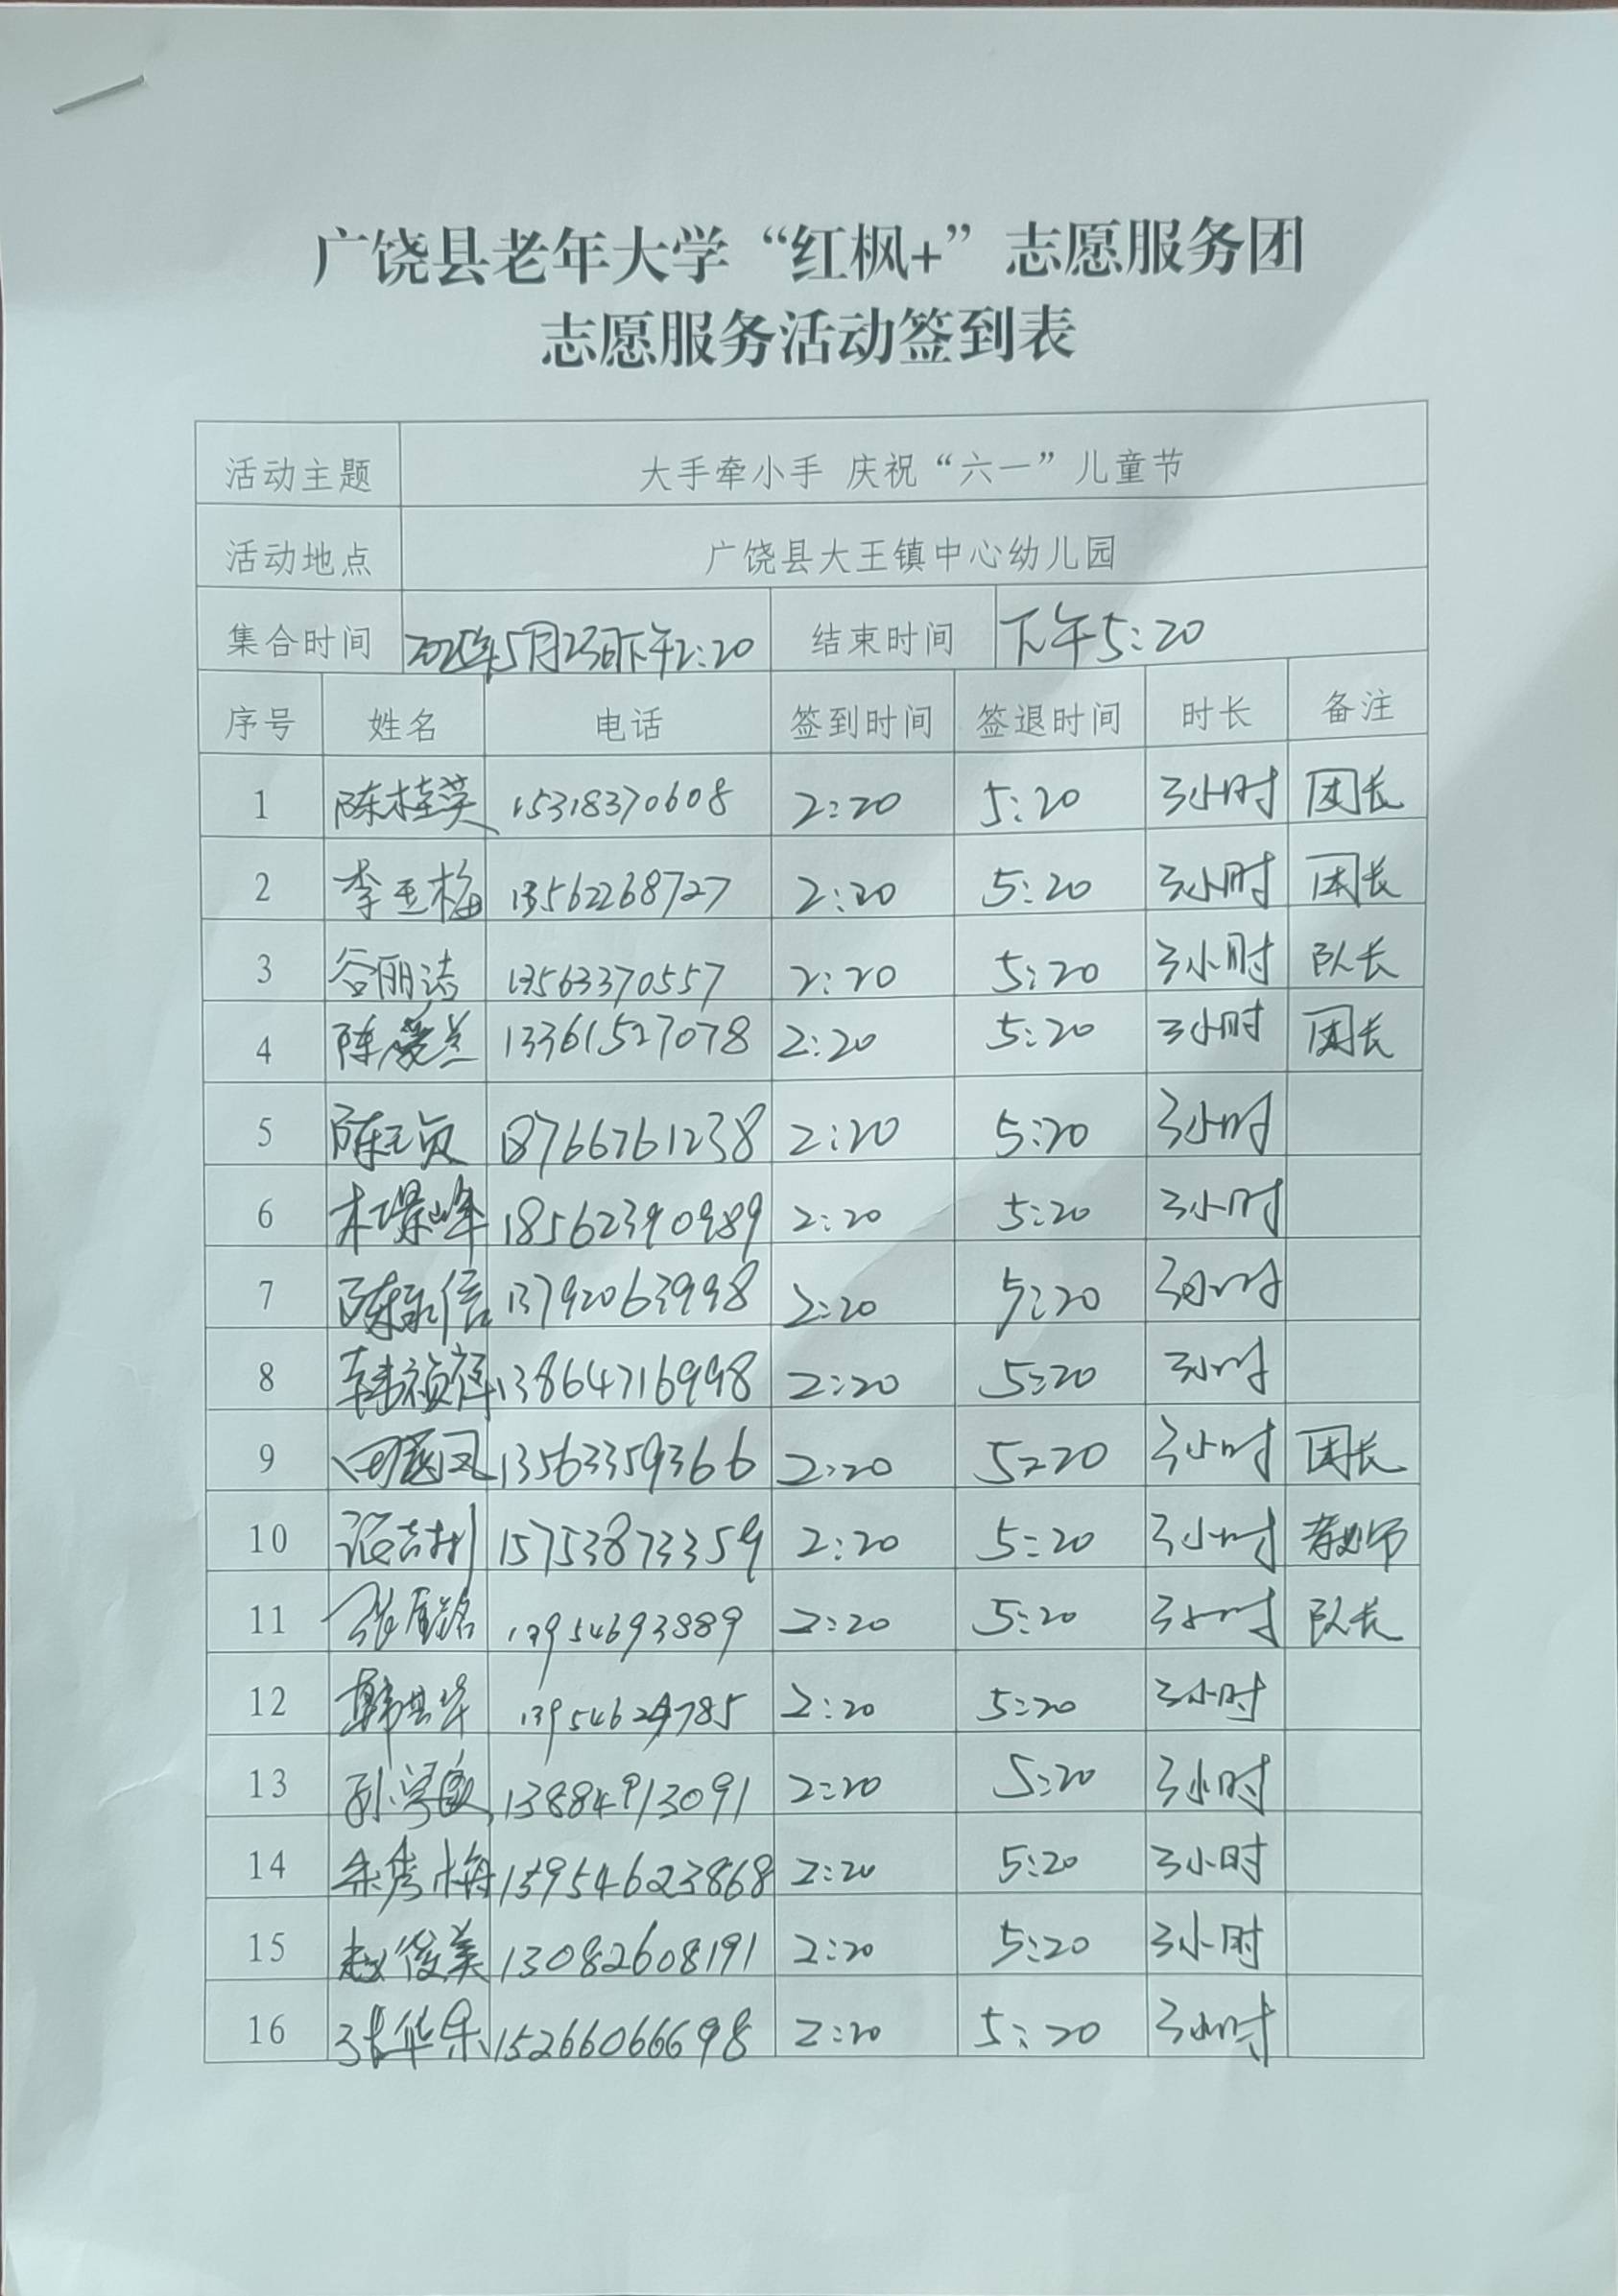 广饶县老年大学“红枫+”志愿服务团
志愿服务活动签到表
活动主题 大手牵小手 庆祝“六一”儿童节
活动地点 广饶县大王镇中心幼儿园
集合时间 2025年5月23日下午2:20 结束时间 下午5:20
序号 姓名 电话 签到时间 签退时间 时长 备注
1 陈桂英 15318370608 2:20 5:20 3小时 团长
2 李亚梅 13562268727 2:20 5:20 3小时 团长
3 谷丽洁 13563370557 2:20 5:20 3小时 队长
4 陈爱兰 13361527078 2:20 5:20 3小时 团长
5 陈玉贞 18766761238 2:20 5:20 3小时
6 18562390989 2:20 5:20 3小时
7 陈永信 13792063998 2:20 5:20 3小时
8 韩祯祥 13864716998 2:20 5:20 3小时
9 13563359366 2:20 5:20 3小时 团长
10 15753873359 2:20 5:20 3小时
11 13954693889 2:20 5:20 3小时 队长
12 2:20 5:20 3小时
13 13884913091 2:20 5:20 3小时
14 朱秀梅 13954623868 2:20 5:20 3小时
15 赵俊美 13082608191 2:20 5:20 3小时
16 张华乐 15266066698 2:20 5:20 3小时